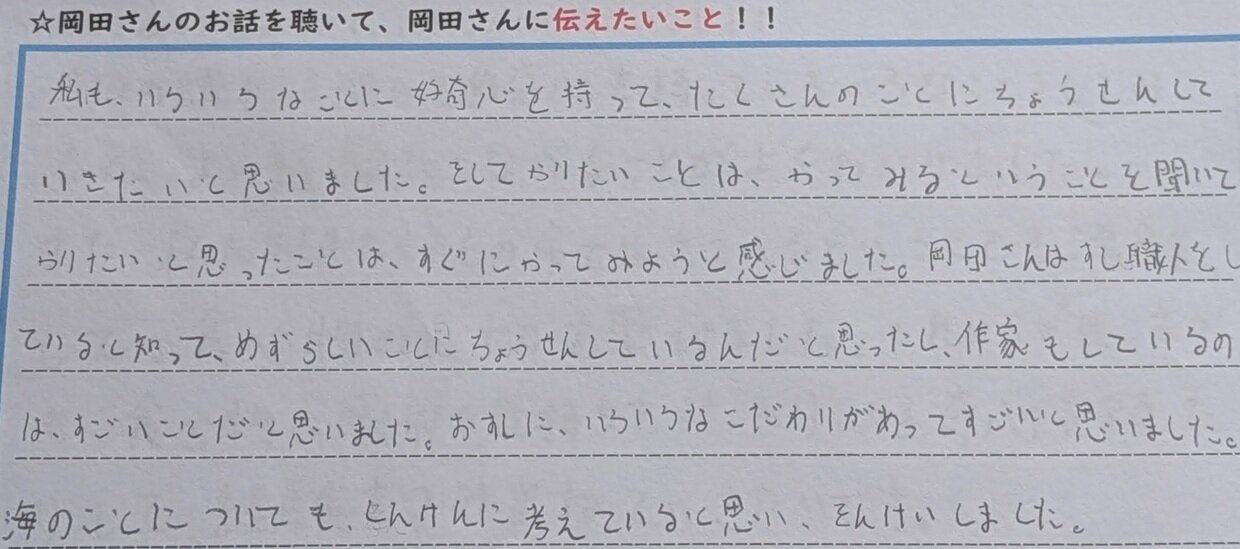 ☆岡田さんのお話を聴いて、岡田さんに伝えたいこと！！
私も、いろいろなことに好奇心を持って、たくさんのことにちょうせんして
いきたいと思いました。そしてやりたいことは、やってみるということを聞いて
やりたいと思ったことは、すぐにやってみようと感じました。岡田さんはすし職人をし
ていると知って、めずらしいことにちょうせんしているんだと思ったし、作家もしているの
は、すごいことだと思いました。おすしに、いろいろなこだわりがあってすごいと思いました。
海のことについても、しんけんに考えていると思い、そんけいしました。